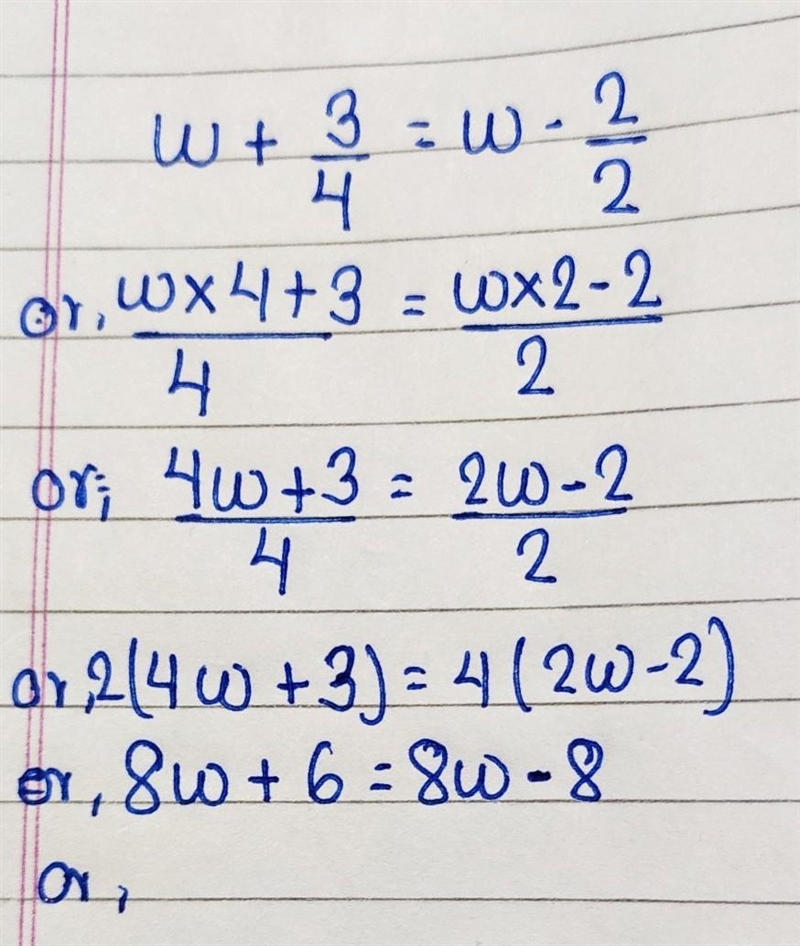 w + 3/4 = w - 2/2
or, w×4+3/4 = w×2-2/2
or; 4w+3/4 = 2w-2/2
or, 2(4w+3) = 4(2w-2)
or, 8w+6 = 8w-8
or,